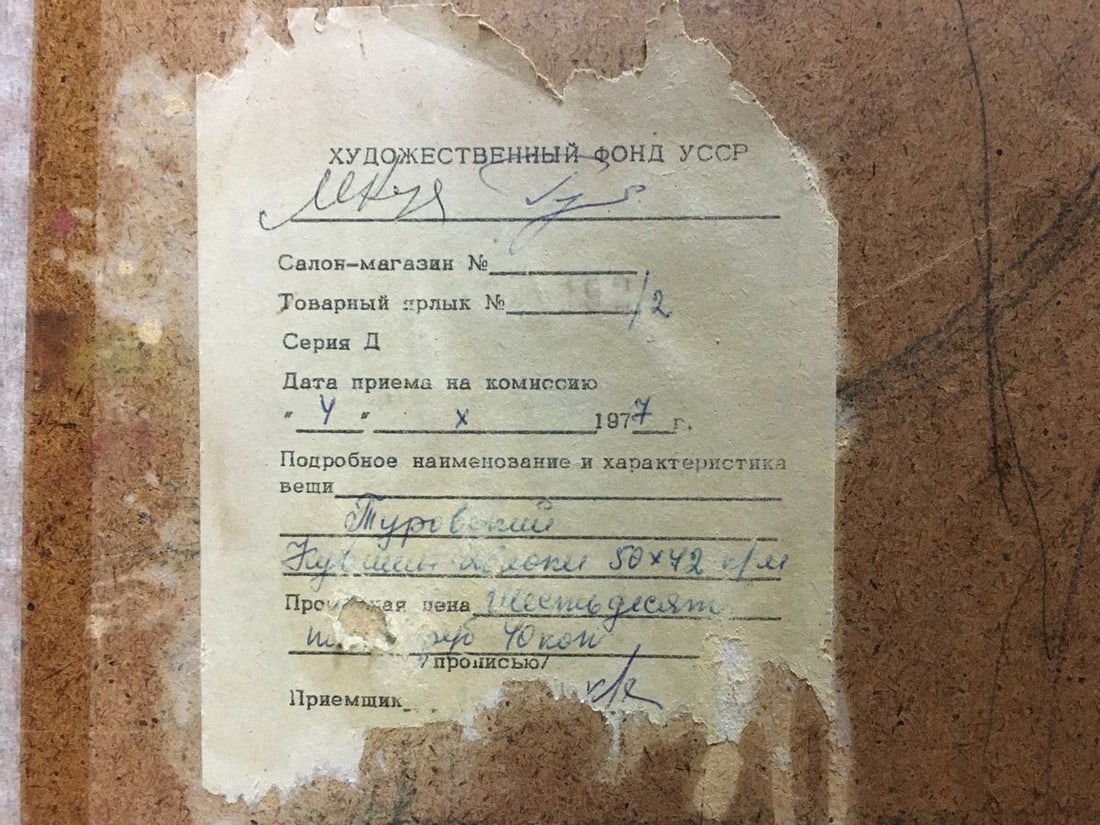 ХУДОЖЕСТВЕННЫЙ ФОНД УССР
Салон-магазин №
Товарный ярлык № /2
Серия Д
Дата приема на комиссию
" 4 " х 1977 г.
Подробное наименование и характеристика
вещи
Туровский
Кувшин яблоки 50х42 к/м
цена Шестьдесят
руб 40 коп
/прописью/
Приемщик